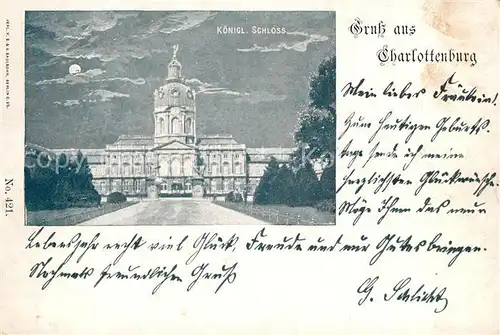 KÖNIGL. SCHLOSS
Gruß aus
Charlottenburg
Mein liebes Fräulein!
Zum heutigen Geburts-
tage sende ich meine
herzlichsten Glückwünsche
Möge Ihnen das neue
Lebensjahr recht viel Glück, Freude und nur Gutes bringen.
Nochmals freundlichen Gruß
G.
No. 421.